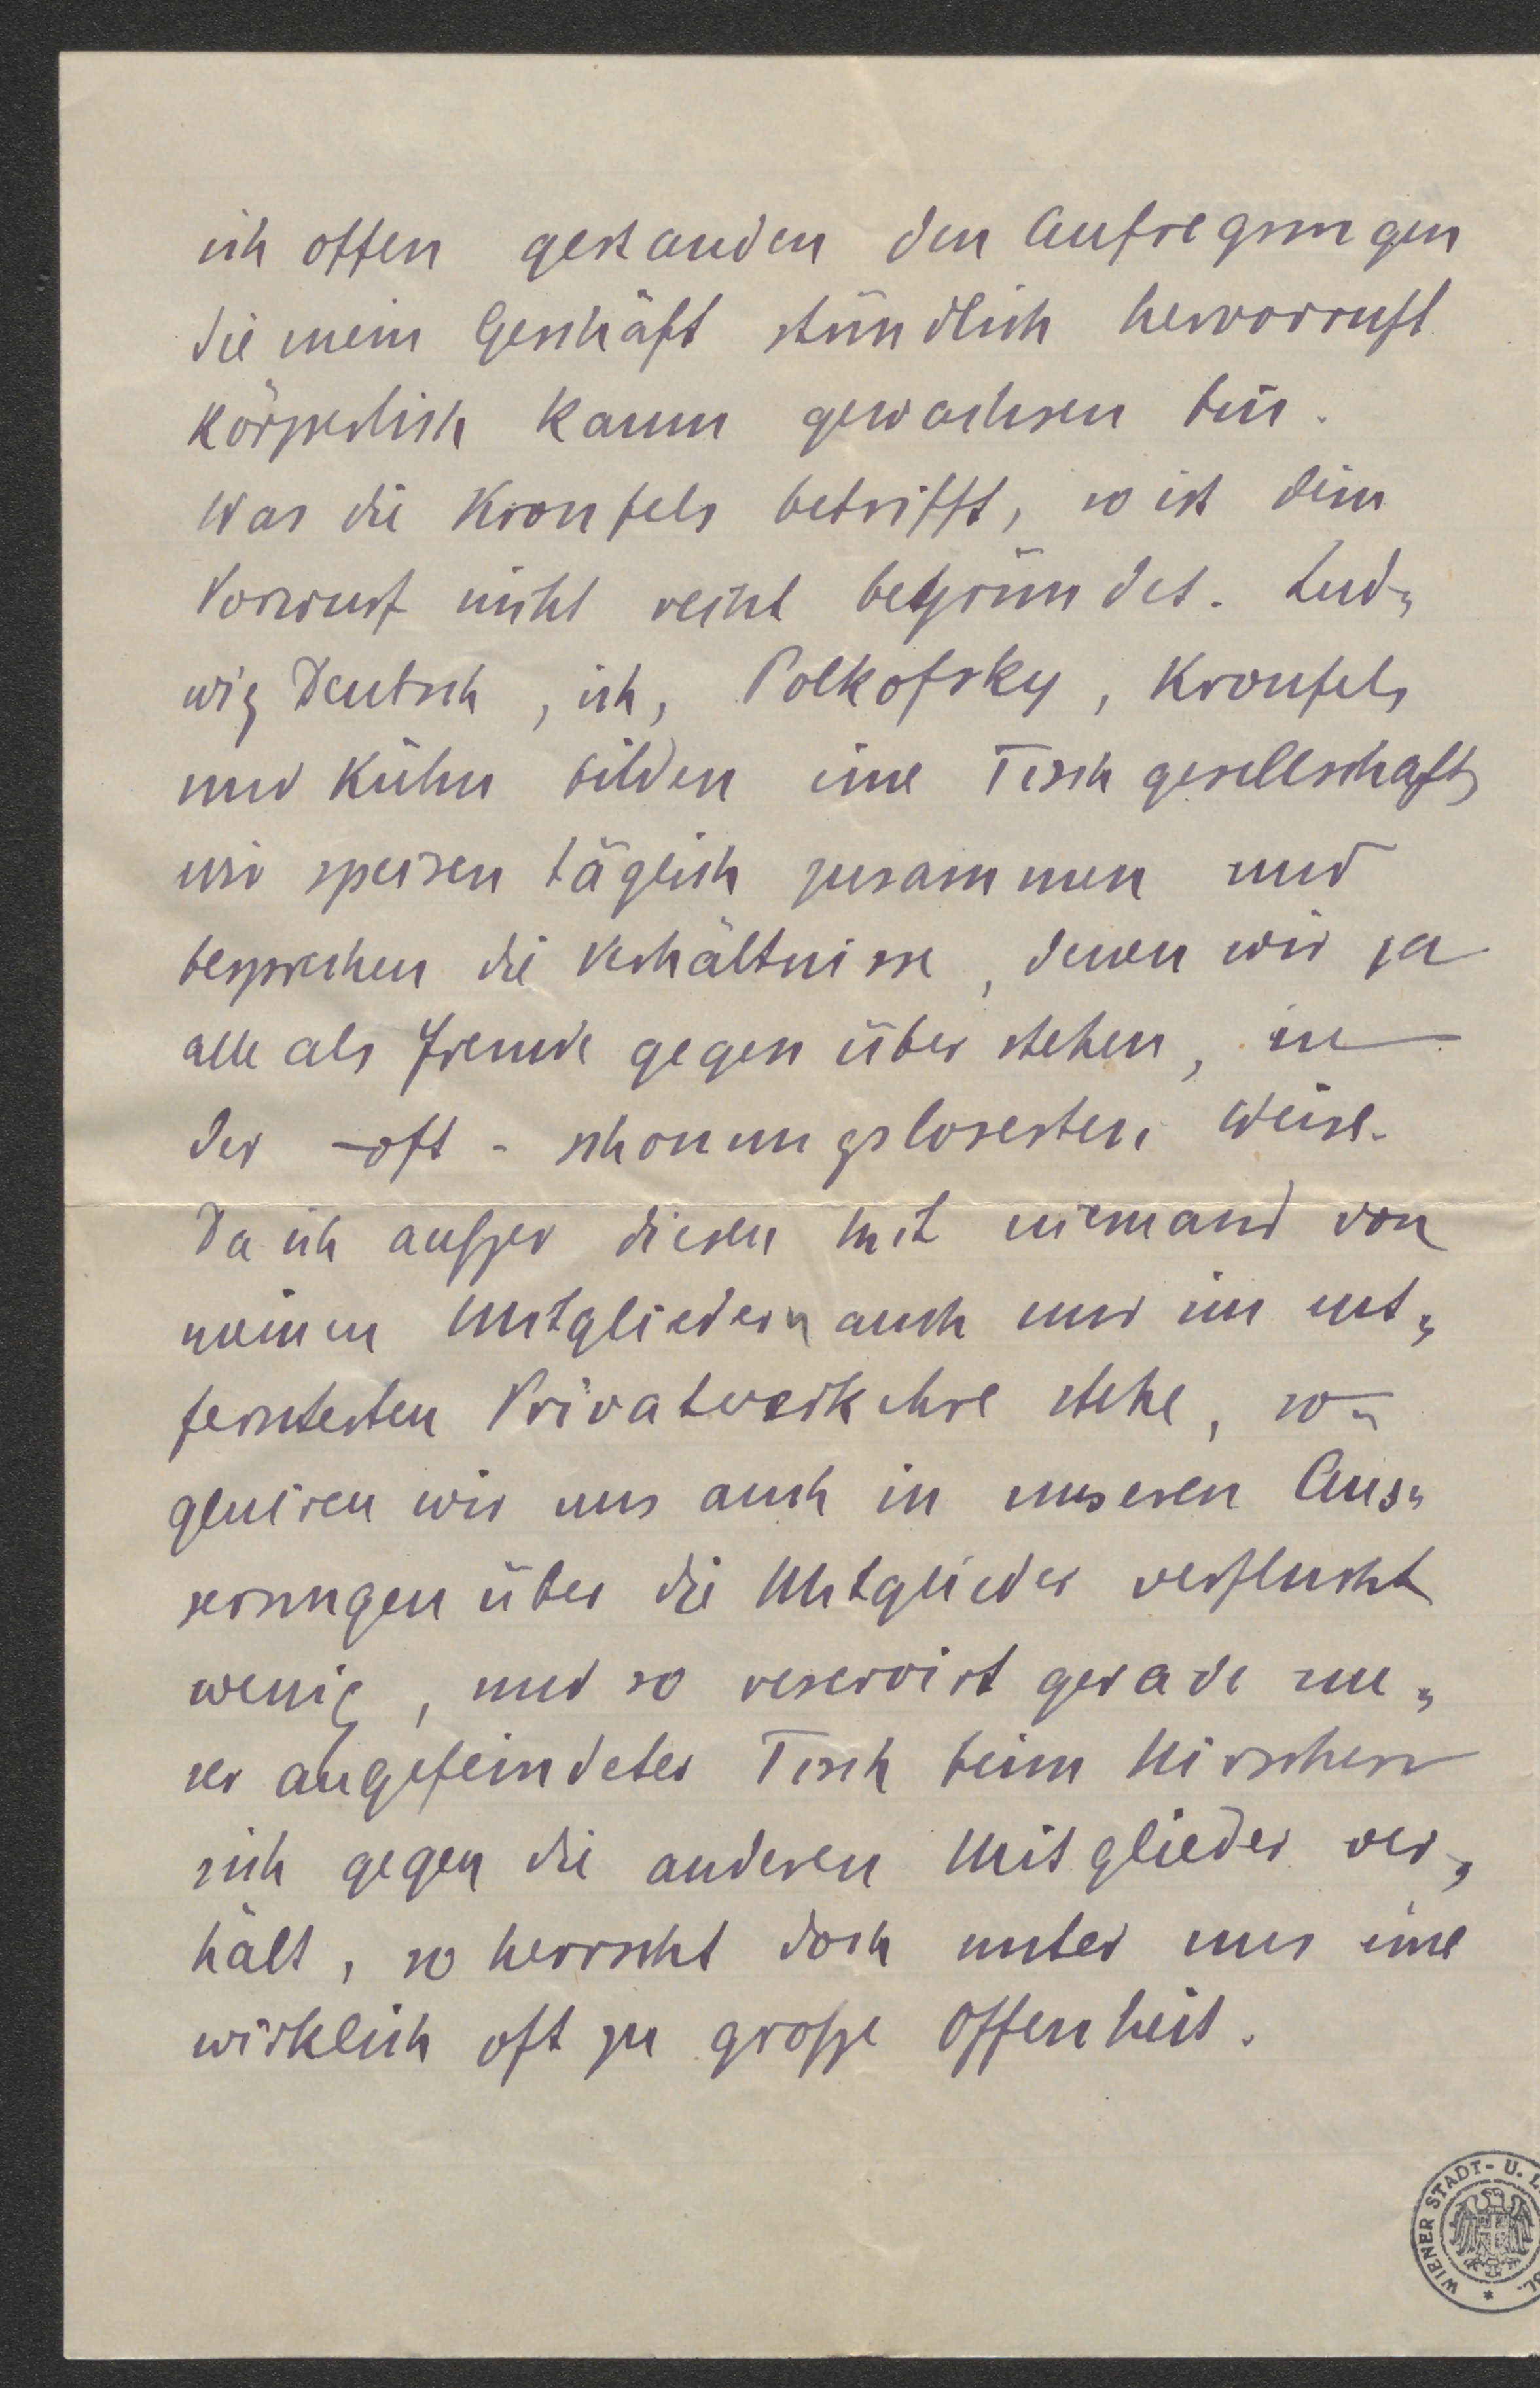 ich offen gestanden den Aufregungen
die mein Geschäft stündlich hervorruft
körperlich kaum gewachsen bin.
Was die Kronfels betrifft, so ist dein
Vorwurf nicht recht begründet. Lud„
wig Deutsch, ich, Polkofsky, Kronfels
und Kühn bilden eine Tischgesellschaft,
wir speisen täglich zusammen und
besprechen die Verhältnisse, denen wir ja
alle als Fremde gegenüber stehen, in
der – oft – schonungslosesten Weise.
Da ich ausser diesen mit niemand von
meinen Mitgliedern auch nur im ent„
ferntesten Privatverkehre stehe, so
geniren wir uns auch in unseren Aus„
serungen über die Mitglieder verflucht
wenig, und so reservirt gerade un„
ser angefeindeter Tisch beim Hirschen
sich gegen die anderen Mitglieder ver„
hält, so herrscht doch unter uns eine
wirklich oft zu grosse Offenheit.
WIENER STADT- U.